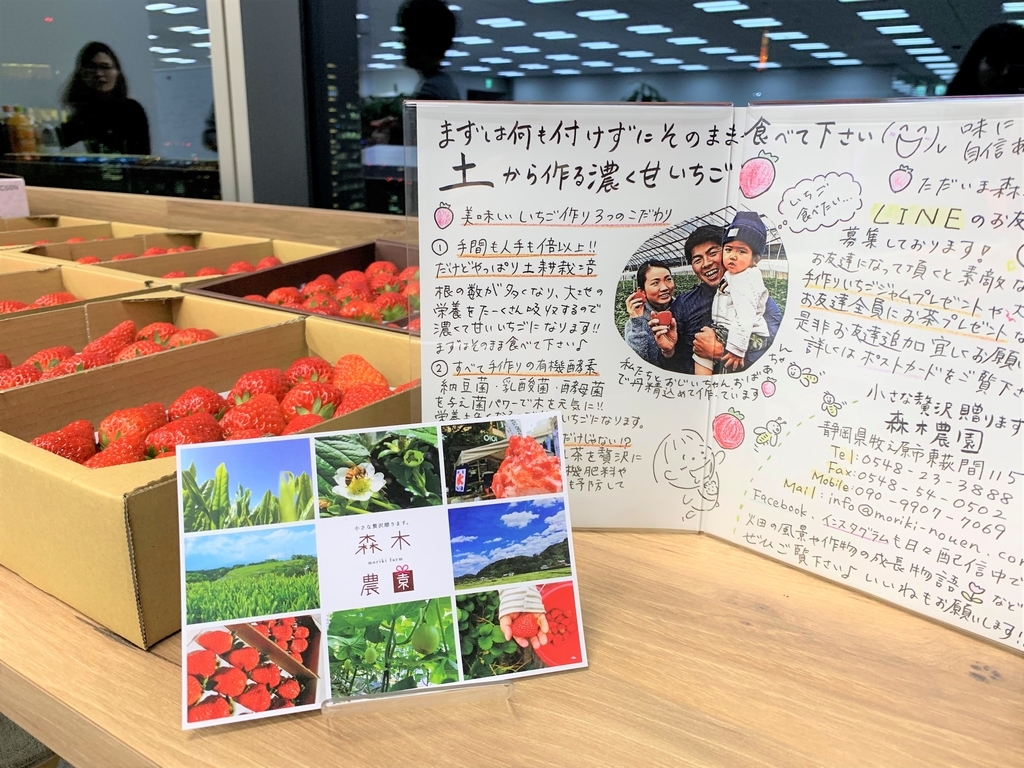 まずは何も付けずにそのまま食べて下さい
味に
自信あ
土から作る濃く甘いちご
美味しいいちご作り3つのこだわり
① 手間も人手も倍以上!!
だけどやっぱり土耕栽培
根の数が多くなり、大させの
栄養をたーくさん吸収するので
濃くて甘いいちごになります!!
まずはそのまま食べて下さい♪
② すべて手作りの有機酵素
納豆菌・乳酸菌・酵母菌
を与え菌パワーで木を元気に!!
いちごになります。
だけじゃない!?
茶を贅沢に
機肥料や
も予防して
私たちと
おじいちゃんおばあちゃん
で丹精込めて作っています
いちご
食べたい…
ただいま森
LINEのお友
募集しております!
お友達になって頂くと素敵な
手作りいちごジャムプレゼントや
お友達全員にお茶プレゼントな
是非お友達追加宜しくお願い
詳しくはポストカードをご覧下さ
小さな贅沢贈ります
森木農園
静岡県牧之原市東萩間115
Tel:0548-23-3888
Fax:0548-54-0502
Mobile:090-9907-7069
Mail:info@moriki-nouen.com
Facebook、インスタグラムも日々配信中で
畑の風景や作物の成長物語など
ぜひご覧下さい♪いいねもお願いします!!
小さな贅沢贈ります。
森木
moriki farm
農園
OIOI